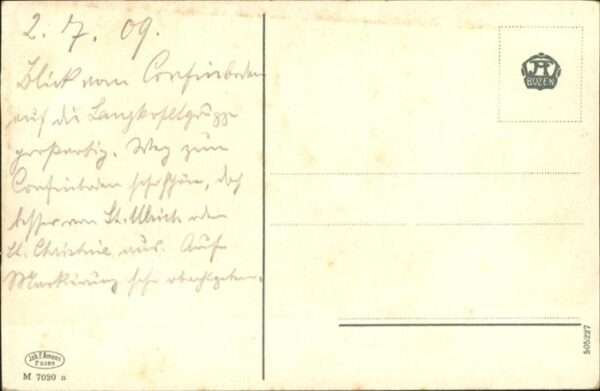 2. 7. 09.
Blick vom Confinboden
auf die Langkoflgruppe
großartig. Weg zum
Confinboden sehr schön, doch
besser von St. Ulrich oder
St. Christine aus. Auf
Markierung sehr obachtgeben.
BOZEN
Joh. F. Amonn
BOZEN
M 7020 a
505/227